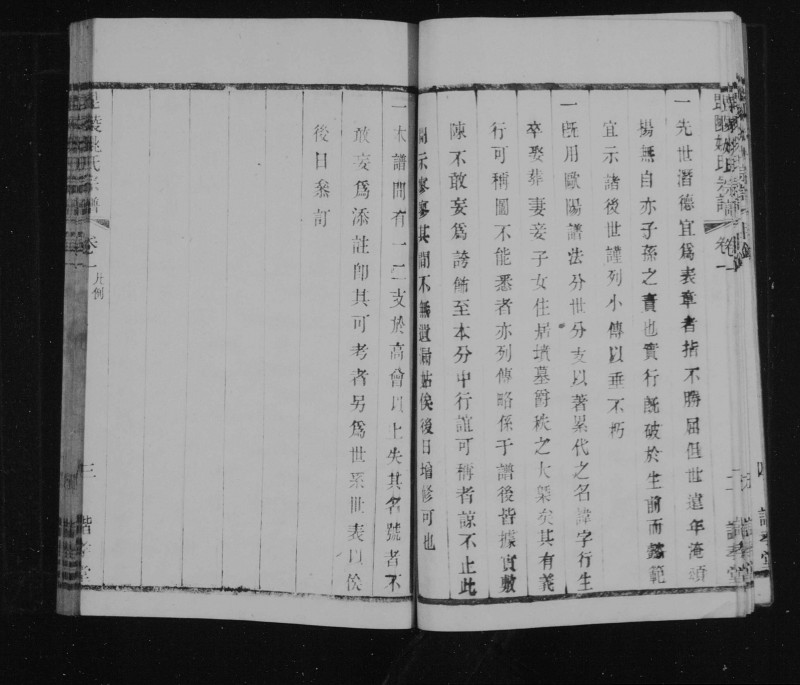 一先世潛德宜爲表章者指不勝屈但世遠年淹頌
揚無自亦子孫之責也實行旣破於生前而懿範
宜示諸後世謹列小傳以垂不朽
一旣用歐陽譜法分世分支以著累代之名諱字行生
卒娶葬妻妾子女住居墳墓爵秩之大槩矣其有義
行可稱圖不能悉者亦列傳略係于譜後皆據實敷
陳不敢妄爲誇飾至本分中行誼可稱者諒不止此
開示寥寥其間不無遺漏姑俟後日增修可也
一本譜間有一二支於高曾以上失其名號者不
敢妄爲添註卽其可考者另爲世系世表以俟
後日叅訂
姚氏宗譜
卷一
凡例
三